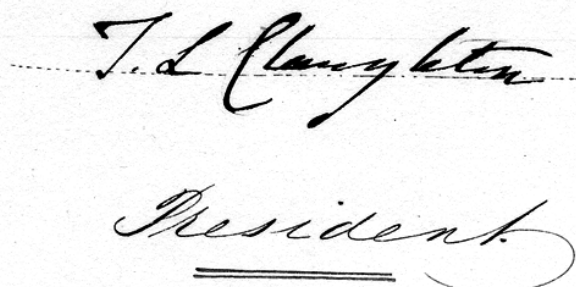 T. L Claughton
President.